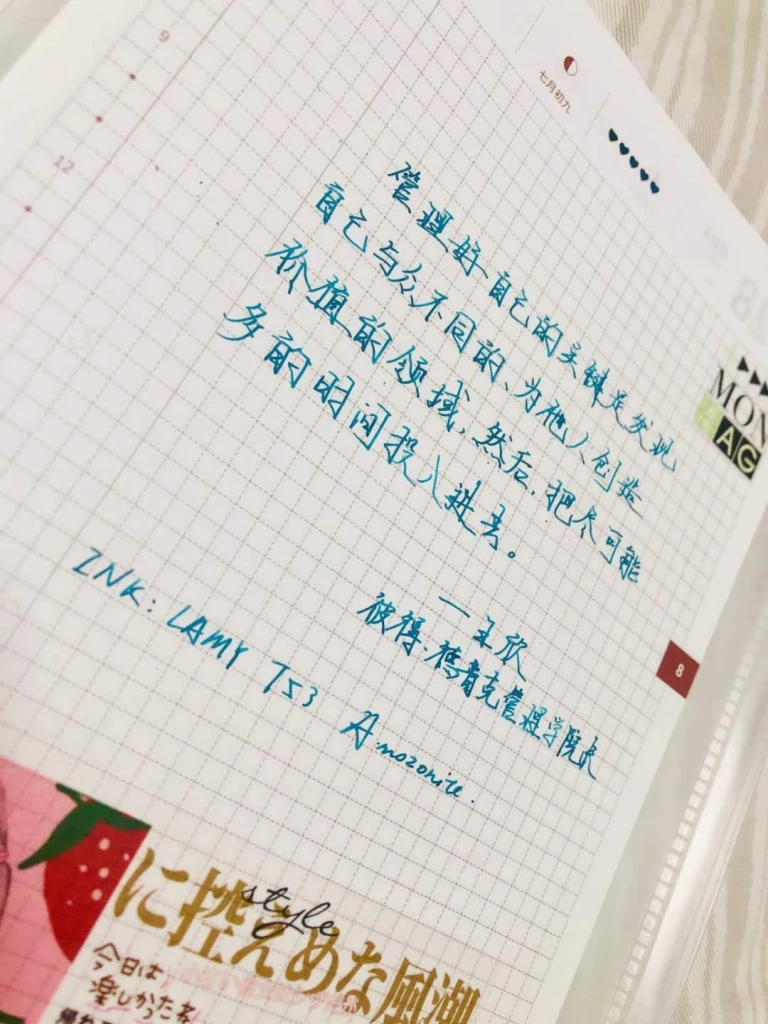 9
12
七月初九
管理好自己的关键是发现
自己与众不同的、为他人创造
价值的领域，然后，把尽可能
多的时间投入进去。
—王欣
彼得·德鲁克管理学院院长
INK: LAMY T53 Amozonite.
MON
AG
8
style
に控えめな風潮
今日は
楽しかったね